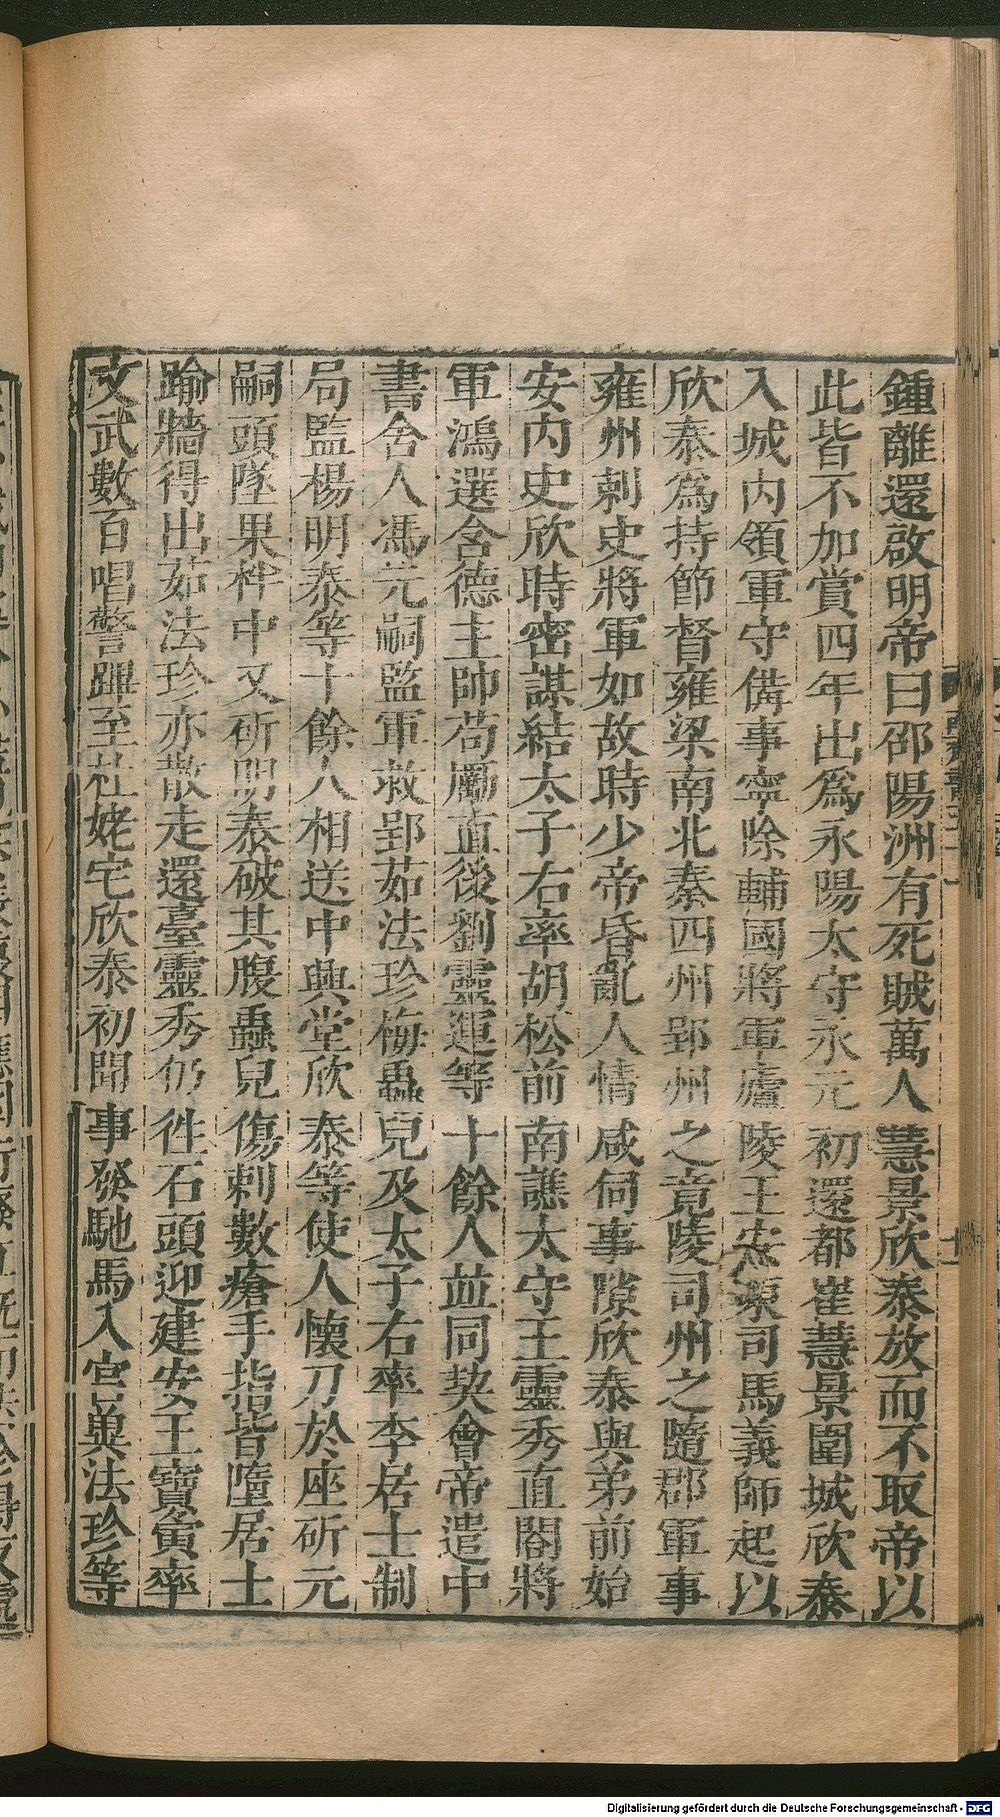 鍾離還啟明帝曰邵陽洲有死賊萬人慧景欣泰放而不取帝以
此皆不加賞四年出爲永陽太守永元初還都崔慧景圍城欣泰
入城內領軍守備事寧除輔國將軍廬陵王安東司馬義師起以
欣泰爲持節督雍梁南北秦四州郢州之竟陵司州之隨郡軍事
雍州刺史將軍如故時少帝昏亂人情咸伺事隙欣泰與弟前始
安內史欣時密謀結太子右率胡松前南譙太守王靈秀直閤將
軍鴻選含德主帥苟勵直後劉靈運等十餘人並同契會帝遣中
書舍人馮元嗣監軍救郢茹法珍梅蟲兒及太子右率李居士制
局監楊明泰等十餘人相送中興堂欣泰等使人懷刀於座斫元
嗣頭墜果柈中又斫明泰破其腹蟲兒傷刺數瘡手指皆墮居士
踰牆得出茹法珍亦散走還臺靈秀仍往石頭迎建安王寶寅率
文武數百唱警蹕至杜姥宅欣泰初聞事發馳馬入宮兾法珍等
Digitalisierung gefördert durch die Deutsche Forschungsgemeinschaft - DFG